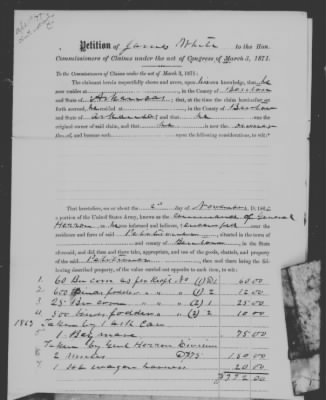 Petition of James White to the Hon.
Commissioners of Claims under the act of Congress of March 3, 1871.
To the Commissioners of Claims under the act of March 3, 1871:
The claimant herein respectfully shows and avers, upon his own knowledge, that he
now resides at , in the County of Benton
and State of Arkansas; that, at the time the claim hereinafter set
forth accrued, he resided at , in the County of Benton
and State of Arkansas; and that he the
original owner of said claim, and that he is now the owner
thereof, and became such upon the following considerations, to wit:
That heretofore, on or about the day of November, 186
a portion of the United States Army, known as the command of General
Herron, as he is informed and believes, encamped near the
residence and farm of said Petitioner, situated in the town of
and county of Benton, in the State
aforesaid, and did then and there take, appropriate, and use of the goods, chattels, and property
of the said Petitioner then and there being the fol-
lowing described property, of the value carried out opposite to each item, to wit:
1. 60 Bu corn as per Recpt No (1) 60.00
2. 600 Binds fodder " " " (1) 2 12.00
3. 25 Bu corn " " (2) 1 25.00
4. 500 Binds fodder " " (2) 2 10.00
1863 Taken by
5 1 Bay mare 75.00
Taken by Genl Herron Division
6 2 mules @ \$75 150.00
7 wagon harness 20.00